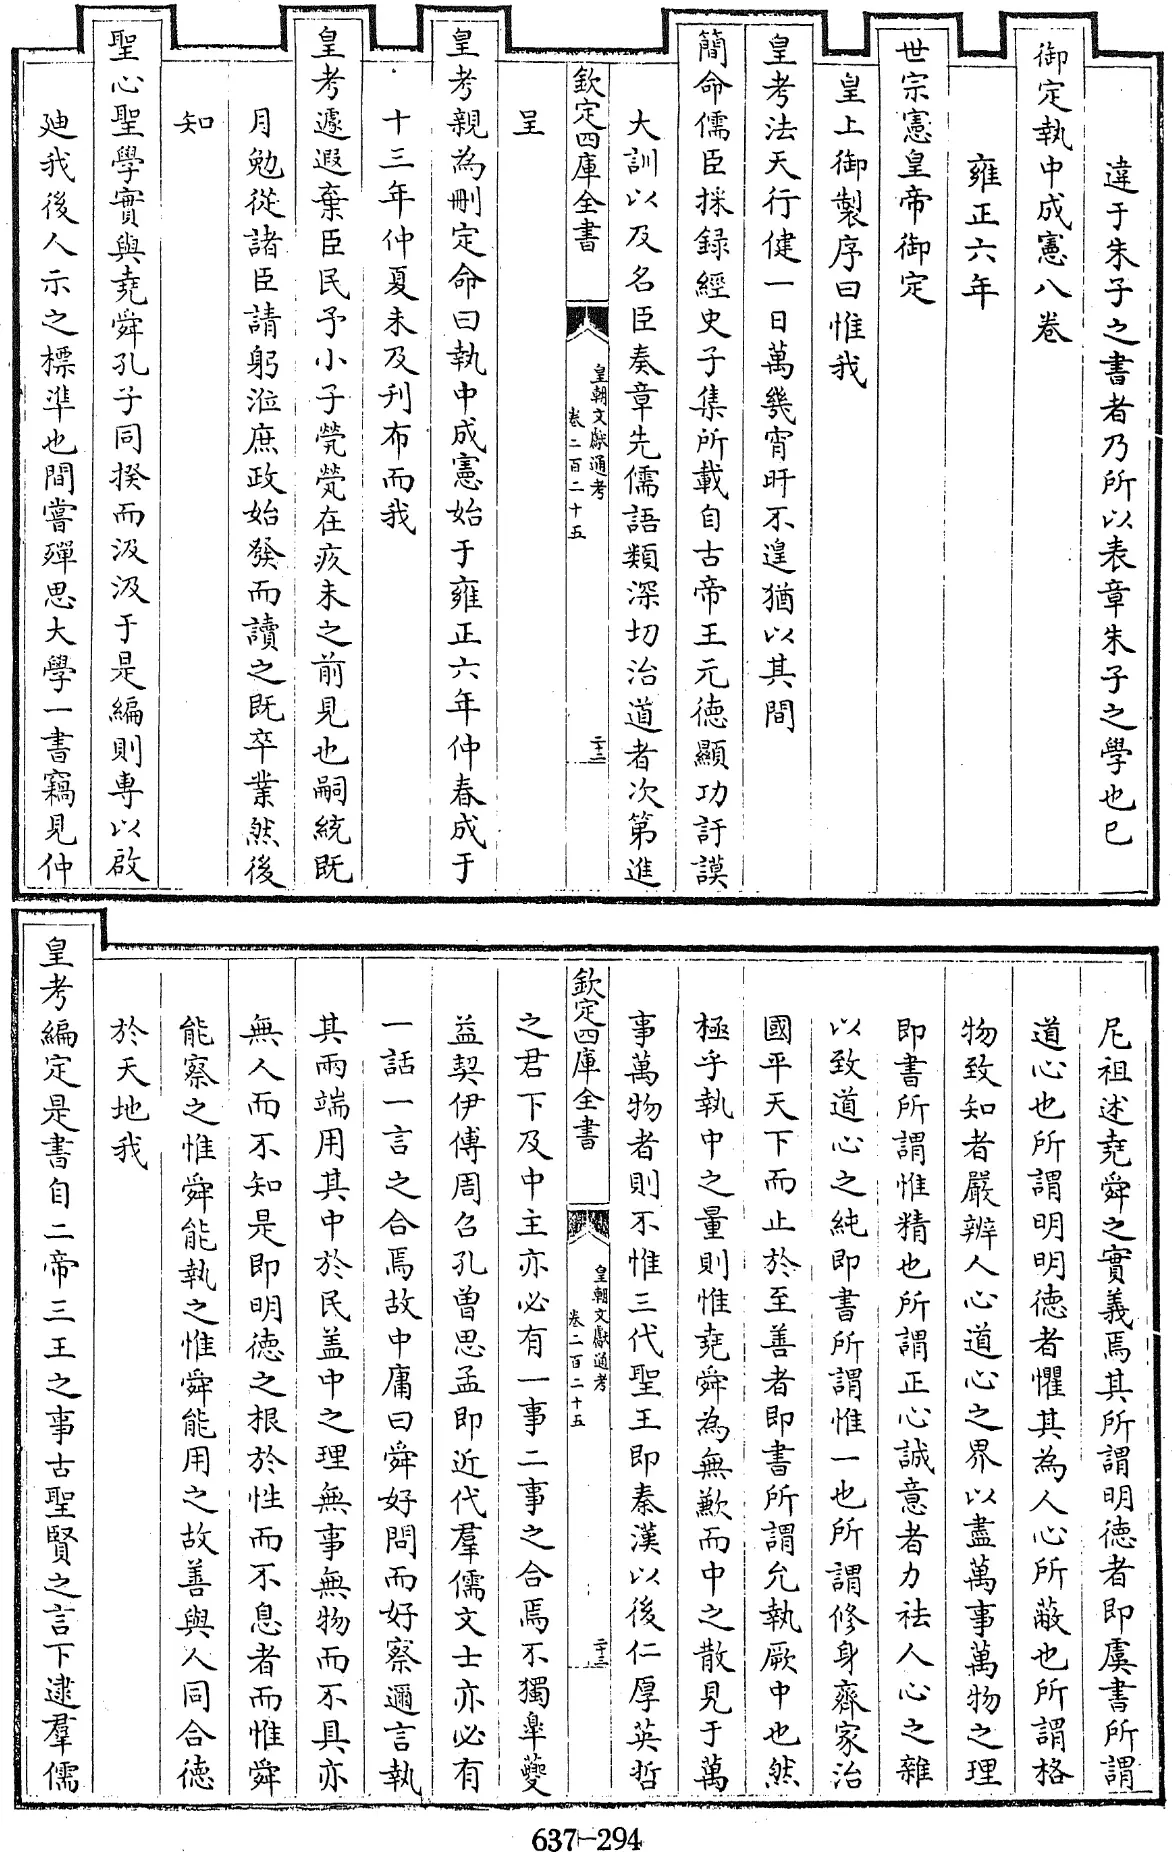 違于朱子之書者乃所以表章朱子之學也已
御定執中成憲八卷
雍正六年
世宗憲皇帝御定
皇上御製序曰惟我
皇考法天行健一日萬幾宵旰不遑猶以其間
簡命儒臣採録經史子集所載自古帝王元德顯功訏謨
大訓以及名臣奏章先儒語類深切治道者次第進
欽定四庫全書
皇朝文獻通考
卷二百二十五
二十三
呈
皇考親為刪定命曰執中成憲始于雍正六年仲春成于
十三年仲夏未及刋布而我
皇考遽遐棄臣民予小子煢煢在疚未之前見也嗣統既
月勉從諸臣請躬涖庶政始發而讀之既卒業然後
知
聖心聖學實與堯舜孔子同揆而汲汲于是編則專以啟
廸我後人示之標準也間嘗殫思大學一書竊見仲
尼祖述堯舜之實義焉其所謂明德者即虞書所謂
道心也所謂明明德者懼其為人心所蔽也所謂格
物致知者嚴辨人心道心之界以盡萬事萬物之理
即書所謂惟精也所謂正心誠意者力祛人心之雜
以致道心之純即書所謂惟一也所謂修身齊家治
國平天下而止於至善者即書所謂允執厥中也然
極乎執中之量則惟堯舜為無歉而中之散見于萬
事萬物者則不惟三代聖王即秦漢以後仁厚英哲
欽定四庫全書
皇朝文獻通考
卷二百二十五
二十三
之君下及中主亦必有一事二事之合焉不獨臯夔
益契伊傅周召孔曾思孟即近代羣儒文士亦必有
一話一言之合焉故中庸曰舜好問而好察邇言執
其兩端用其中於民盖中之理無事無物而不具亦
無人而不知是即明德之根於性而不息者而惟舜
能察之惟舜能執之惟舜能用之故善與人同合德
於天地我
皇考編定是書自二帝三王之事古聖賢之言下逮羣儒
637-294